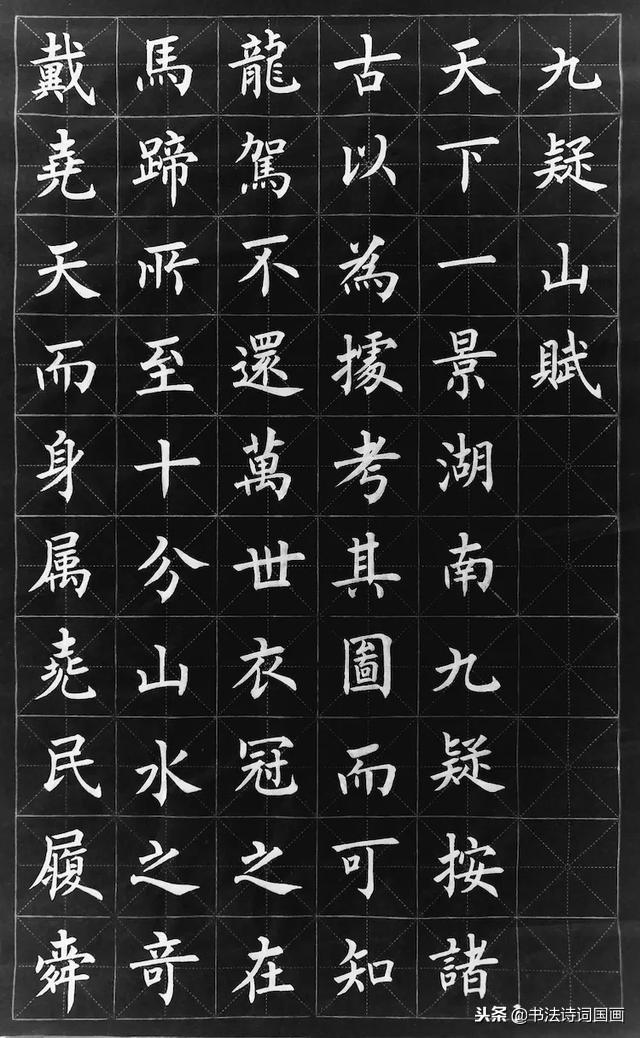 九疑山賦
天下一景湖南九疑按諸
古以為據考其圖而可知
龍駕不還萬世衣冠之在
馬蹄所至十分山水之奇
戴堯天而身属堯民履舜
头条 @书法诗词国画